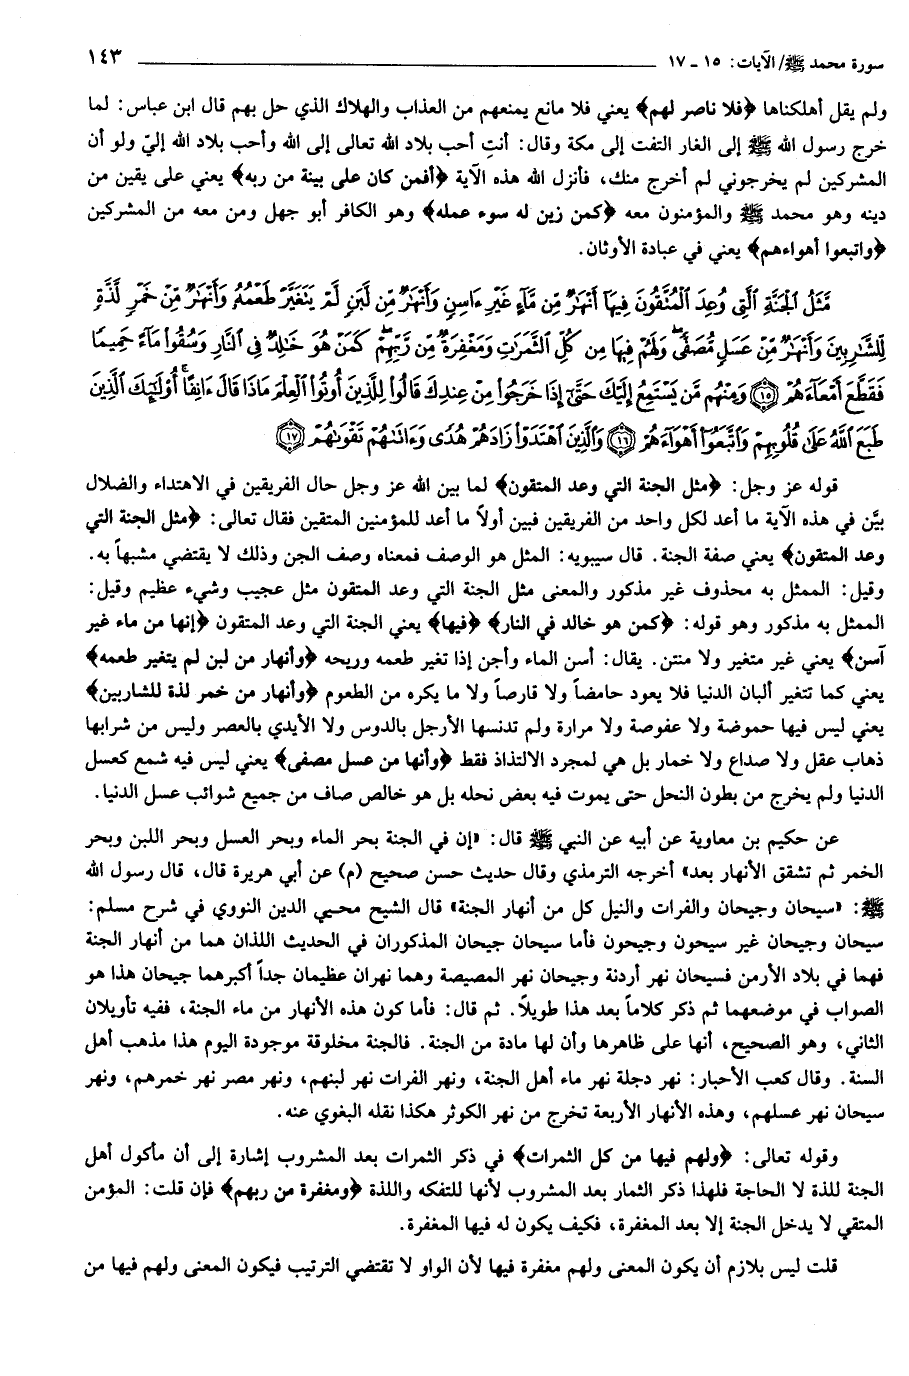 سورة محمد ﷺ/ الآيات: ١٥ ـ ١٧ ١٤٣
ولم يقل أهلكناها ﴿فلا ناصر لهم﴾ يعني فلا مانع يمنعهم من العذاب والهلاك الذي حل بهم قال ابن عباس: لما
خرج رسول الله ﷺ إلى الغار التفت إلى مكة وقال: أنتِ أحب بلاد الله تعالى إلى الله وأحب بلاد الله إليّ ولو أن
المشركين لم يخرجوني لم أخرج منك، فأنزل الله هذه الآية ﴿أفمن كان على بينة من ربه﴾ يعني على يقين من
دينه وهو محمد ﷺ والمؤمنون معه ﴿كمن زين له سوء عمله﴾ وهو الكافر أبو جهل ومن معه من المشركين
﴿واتبعوا أهواءهم﴾ يعني في عبادة الأوثان.
مَّثَلُ ٱلْجَنَّةِ ٱلَّتِي وُعِدَ ٱلْمُنَّقُونَ فِيهَآ أَنْهَٰرٌ مِّن مَّآءٍ غَيْرِ ءَاسِنٍ وَأَنْهَٰرٌ مِّن لَّبَنٍ لَّمْ يَتَغَيَّرْ طَعْمُهُۥ وَأَنْهَٰرٌ مِّنْ خَمْرٍ لَّذَّةٍ
لِّلشَّٰرِبِينَ وَأَنْهَٰرٌ مِّنْ عَسَلٍ مُّصَفًّى وَلَهُمْ فِيهَا مِن كُلِّ ٱلثَّمَرَٰتِ وَمَغْفِرَةٌ مِّن رَّبِّهِمْ كَمَنْ هُوَ خَٰلِدٌ فِي ٱلنَّارِ وَسُقُوا۟ مَآءً حَمِيمًا
فَقَطَّعَ أَمْعَآءَهُمْ ﴿١٥﴾ وَمِنْهُم مَّن يَسْتَمِعُ إِلَيْكَ حَتَّىٰٓ إِذَا خَرَجُوا۟ مِنْ عِندِكَ قَالُوا۟ لِلَّذِينَ أُوتُوا۟ ٱلْعِلْمَ مَاذَا قَالَ ءَانِفًا أُو۟لَٰٓئِكَ ٱلَّذِينَ
طَبَعَ ٱللَّهُ عَلَىٰ قُلُوبِهِمْ وَٱتَّبَعُوٓا۟ أَهْوَآءَهُمْ ﴿١٦﴾ وَٱلَّذِينَ ٱهْتَدَوْا۟ زَادَهُمْ هُدًى وَءَاتَىٰهُمْ تَقْوَىٰهُمْ ﴿١٧﴾
قوله عز وجل: ﴿مثل الجنة التي وعد المتقون﴾ لما بين الله عز وجل حال الفريقين في الاهتداء والضلال
بيَّن في هذه الآية ما أعد لكل واحد من الفريقين فبين أولاً ما أعد للمؤمنين المتقين فقال تعالى: ﴿مثل الجنة التي
وعد المتقون﴾ يعني صفة الجنة. قال سيبويه: المثل هو الوصف فمعناه وصف الجن وذلك لا يقتضي مشبهاً به.
وقيل: الممثل به محذوف غير مذكور والمعنى مثل الجنة التي وعد المتقون مثل عجيب وشيء عظيم وقيل:
الممثل به مذكور وهو قوله: ﴿كمن هو خالد في النار﴾ ﴿فيها﴾ يعني الجنة التي وعد المتقون ﴿إنها من ماء غير
آسن﴾ يعني غير متغير ولا منتن. يقال: أسن الماء وأجن إذا تغير طعمه وريحه ﴿وأنهار من لبن لم يتغير طعمه﴾
يعني كما تتغير ألبان الدنيا فلا يعود حامضاً ولا قارصاً ولا ما يكره من الطعوم ﴿وأنهار من خمر لذة للشاربين﴾
يعني ليس فيها حموضة ولا عفوصة ولا مرارة ولم تدنسها الأرجل بالدوس ولا الأيدي بالعصر وليس من شرابها
ذهاب عقل ولا صداع ولا خمار بل هي لمجرد الالتذاذ فقط ﴿وأنها من عسل مصفى﴾ يعني ليس فيه شمع كعسل
الدنيا ولم يخرج من بطون النحل حتى يموت فيه بعض نحله بل هو خالص صاف من جميع شوائب عسل الدنيا.
عن حكيم بن معاوية عن أبيه عن النبي ﷺ قال: «إن في الجنة بحر الماء وبحر العسل وبحر اللبن وبحر
الخمر ثم تشقق الأنهار بعد» أخرجه الترمذي وقال حديث حسن صحيح (م) عن أبي هريرة قال، قال رسول الله
ﷺ: «سيحان وجيحان والفرات والنيل كل من أنهار الجنة» قال الشيخ محيي الدين النووي في شرح مسلم:
سيحان وجيحان غير سيحون وجيحون فأما سيحان جيحان المذكوران في الحديث اللذان هما من أنهار الجنة
فهما في بلاد الأرمن فسيحان نهر أردنة وجيحان نهر المصيصة وهما نهران عظيمان جداً أكبرهما جيحان هذا هو
الصواب في موضعهما ثم ذكر كلاماً بعد هذا طويلاً. ثم قال: فأما كون هذه الأنهار من ماء الجنة، ففيه تأويلان
الثاني، وهو الصحيح، أنها على ظاهرها وأن لها مادة من الجنة. فالجنة مخلوقة موجودة اليوم هذا مذهب أهل
السنة. وقال كعب الأحبار: نهر دجلة نهر ماء أهل الجنة، ونهر الفرات نهر لبنهم، ونهر مصر نهر خمرهم، ونهر
سيحان نهر عسلهم، وهذه الأنهار الأربعة تخرج من نهر الكوثر هكذا نقله البغوي عنه.
وقوله تعالى: ﴿ولهم فيها من كل الثمرات﴾ في ذكر الثمرات بعد المشروب إشارة إلى أن مأكول أهل
الجنة للذة لا الحاجة فلهذا ذكر الثمار بعد المشروب لأنها للتفكه واللذة ﴿ومغفرة من ربهم﴾ فإن قلت: المؤمن
المتقي لا يدخل الجنة إلا بعد المغفرة، فكيف يكون له فيها المغفرة.
قلت ليس بلازم أن يكون المعنى ولهم مغفرة فيها لأن الواو لا تقتضي الترتيب فيكون المعنى ولهم فيها من